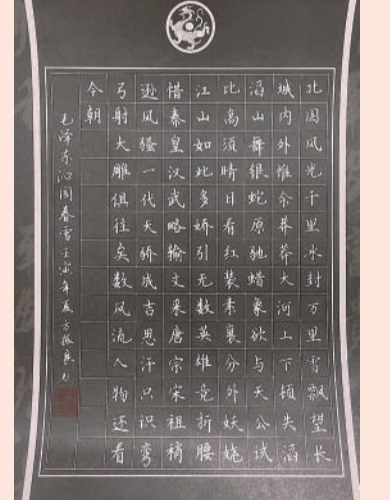 北国风光千里冰封万里雪飘望长
城内外惟余莽莽大河上下顿失滔
滔山舞银蛇原驰蜡象欲与天公试
比高须晴日看红装素裹分外妖娆
江山如此多娇引无数英雄竞折腰
惜秦皇汉武略输文采唐宗宋祖稍
逊风骚一代天骄成吉思汗只识弯
弓射大雕俱往矣数风流人物还看
今朝
毛泽东沁园春雪壬寅年夏方振